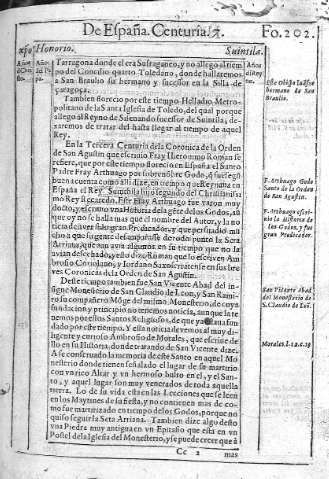 De España. Centuria 7. Fo. 202.
Honorio. Suintila.
Tarragona donde el era Sufraganeo, y no allego al tiempo
del Concilio quarto Toledano, donde hallaremos
a San Braulio su hermano y sucessor en la Silla de
çaragoça.
Tambien florecio por este tiempo Helladio Metropolitano
de la Santa Iglesia de Toledo, del qual porque
allego al Reyno de Sisenando sucessor de Suintila, dexaremos
de tratar del hasta llegar al tiempo de aquel
Rey.
En la Tercera Centuria de la Coronica de la Orden
de San Agustin que escriuio Fray Hieronimo Roman se
refiere, que por este tiempo florecio en España el Santo
Padre Fray Arthuago por sobrenombre Godo, a su
buen acuenta como alli dize, en tiempo que Reynaua en
España el Rey Suintila hijo segundo del Christianissimo
Rey Recaredo. Este Fray Arthuago fue varon muy
docto, y escriuio vna Historia de la gēte de los Godos, au
que oy no se halla mas que el nombre del Autor, y la noticia
de auer sido gran Predicador, y que persuadio mucho
a que
Arriana, que aun en
auian desechado, y esto dize Roman que lo escriuen Ambrosio
Coriolano, y Iordano Saxo
ues Coronicas de la Orden de San Agustin.
Deste tiempo tambien fue San Vicente Abad del insigne
Monesterio de San Claudio de Leon, y San Ramiro
su compañero Mōge del mismo Monesterio, de cuya
fundacion y principio no tenemos noticia, aunque la tenemos
por estos Santos Religiosos, de que ya estaua fundado
por este tiempo. Y esta noticia de uemos al muy diligente
y curioso Ambrosio de Morales, que escriue dello
en su Historia, donde tratando de San Vicente dize,
A se conseruado la memoria deste Santo en aquel Monesterio
donde tienen señalado el lugar de su martirio
con vn rico Altar y vn hermoso bulto en el, y el Santo,
y aquel lugar son muy venerados de toda aquella
tierra. Lo de su vida esta en las Lecciones que se leen
en los Maytines de su fiesta, y no contienen mas de como
fue martirizado en tiempo de los Godos, porque no
quiso seguir la Seta Arriana. Tambien dize algo desto
vna Piedra muy antigua cō vn Epitafio que esta en vn
Postel de la Iglesia del Monesterio, y se puede creer que à
Cc 2 mas
Este Obispo
hermano de San
Braulio.
F. Arthuago Godo
Santo de la Orden
de San Agustin.
F. Arthuago escriuio
la Historia de
los Godos, y fue
gran Predicador.
San Vicente Abad
del Monesterio de
S. Claudio de Leō.
Morales.